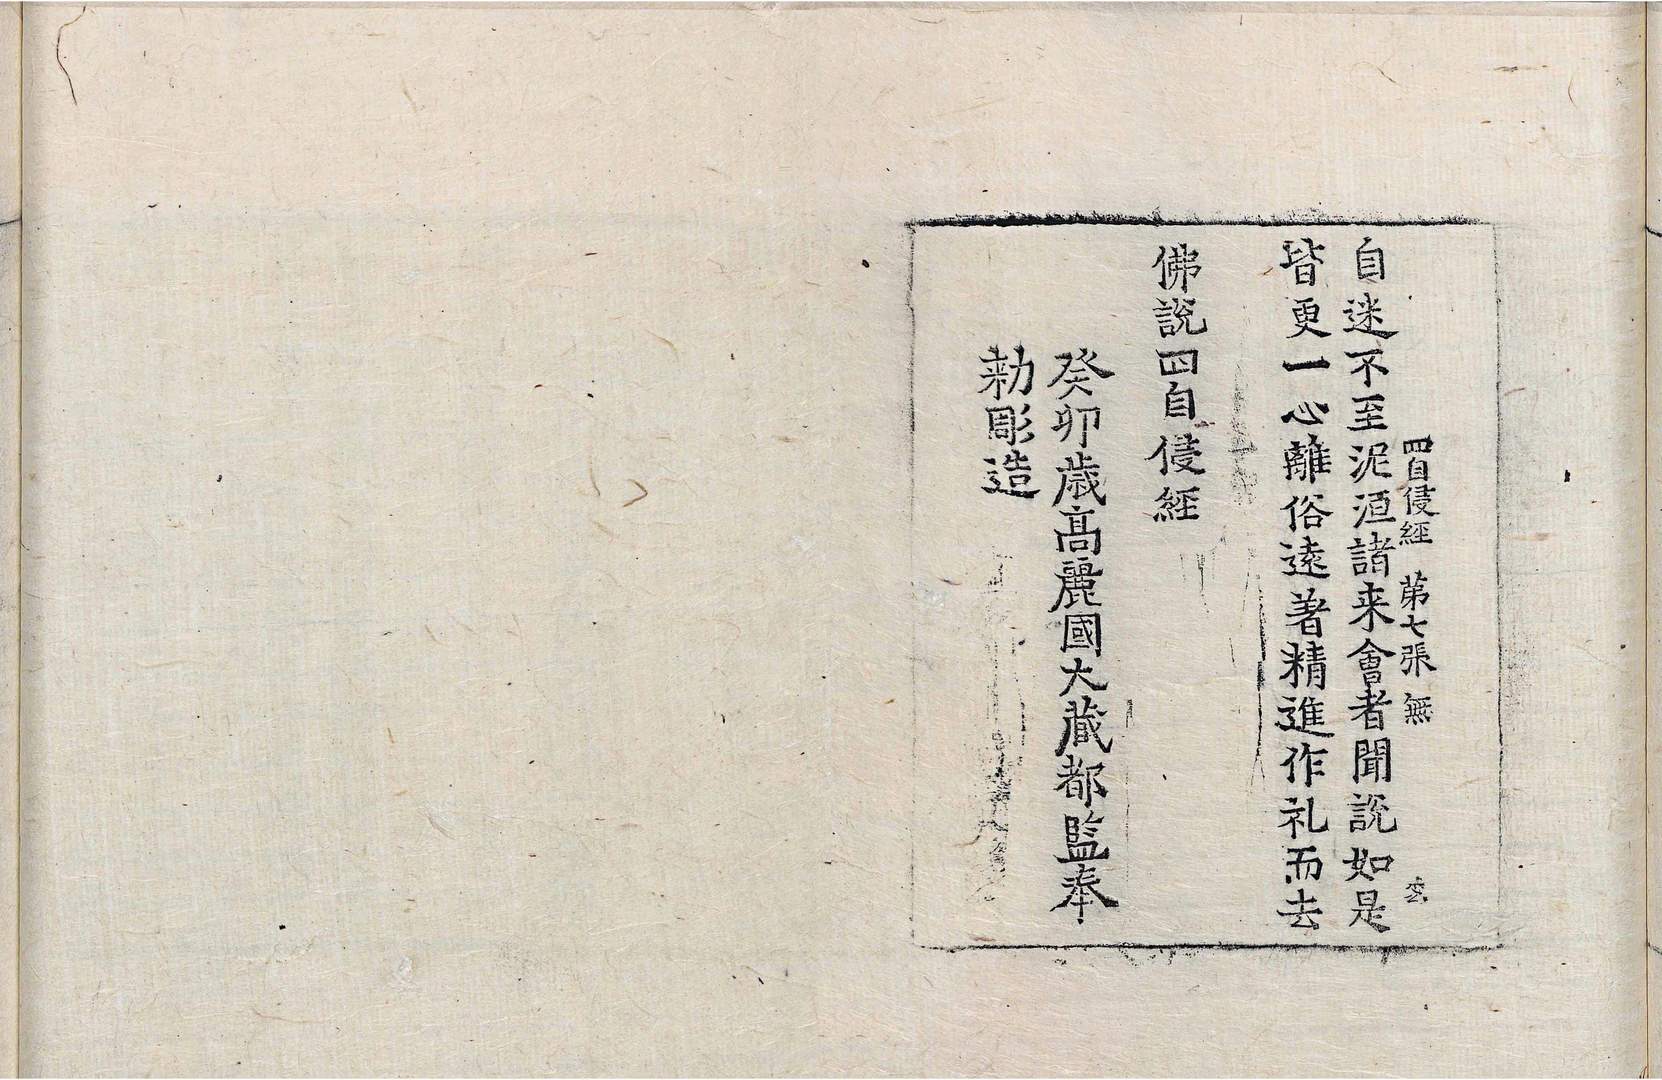 四自侵經 第七張 無
自迷不至泥洹諸来會者聞說如是
皆更一心離俗遠著精進作礼而去
佛說四自侵經
癸卯歲高麗國大藏都監奉
勅彫造